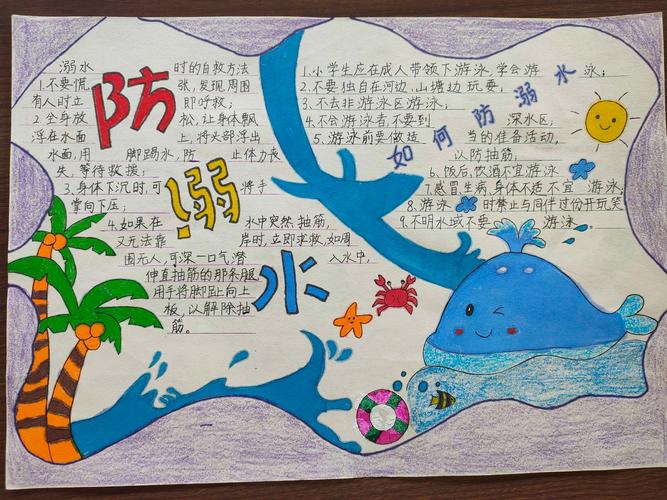 防溺水
溺水 时的自救方法
1.不要慌 张,发现周围
有人时立 即呼救;
2.全身放 松,让身体飘
浮在水面 上,将头部浮出
水面,用 脚踢水,防 止体力丧
失,等待救援;
3.身体下沉时,可 将手
掌向下压;
4.如果在 水中突然抽筋,
又无法靠 岸时,立即求救,如周
围无人,可深一口气,潜 入水中,
伸直抽筋的那条腿,
用手将脚趾向上
板,以解除抽
筋。
如何防溺水
1.小学生应在成人带领下游泳,学会游 泳;
2.不要独自在河边,山塘边玩耍,
3.不去非游泳区游泳;
4.不会游泳者,不要到 深水区,
5.游泳前要做适 当的准备活动,
以防抽筋,
6.饭后,饮酒不宜游泳
7.感冒,生病,身体不适不宜 游泳;
8.游泳 时禁止与同伴过份开玩笑
9.不明水域不要 游泳。